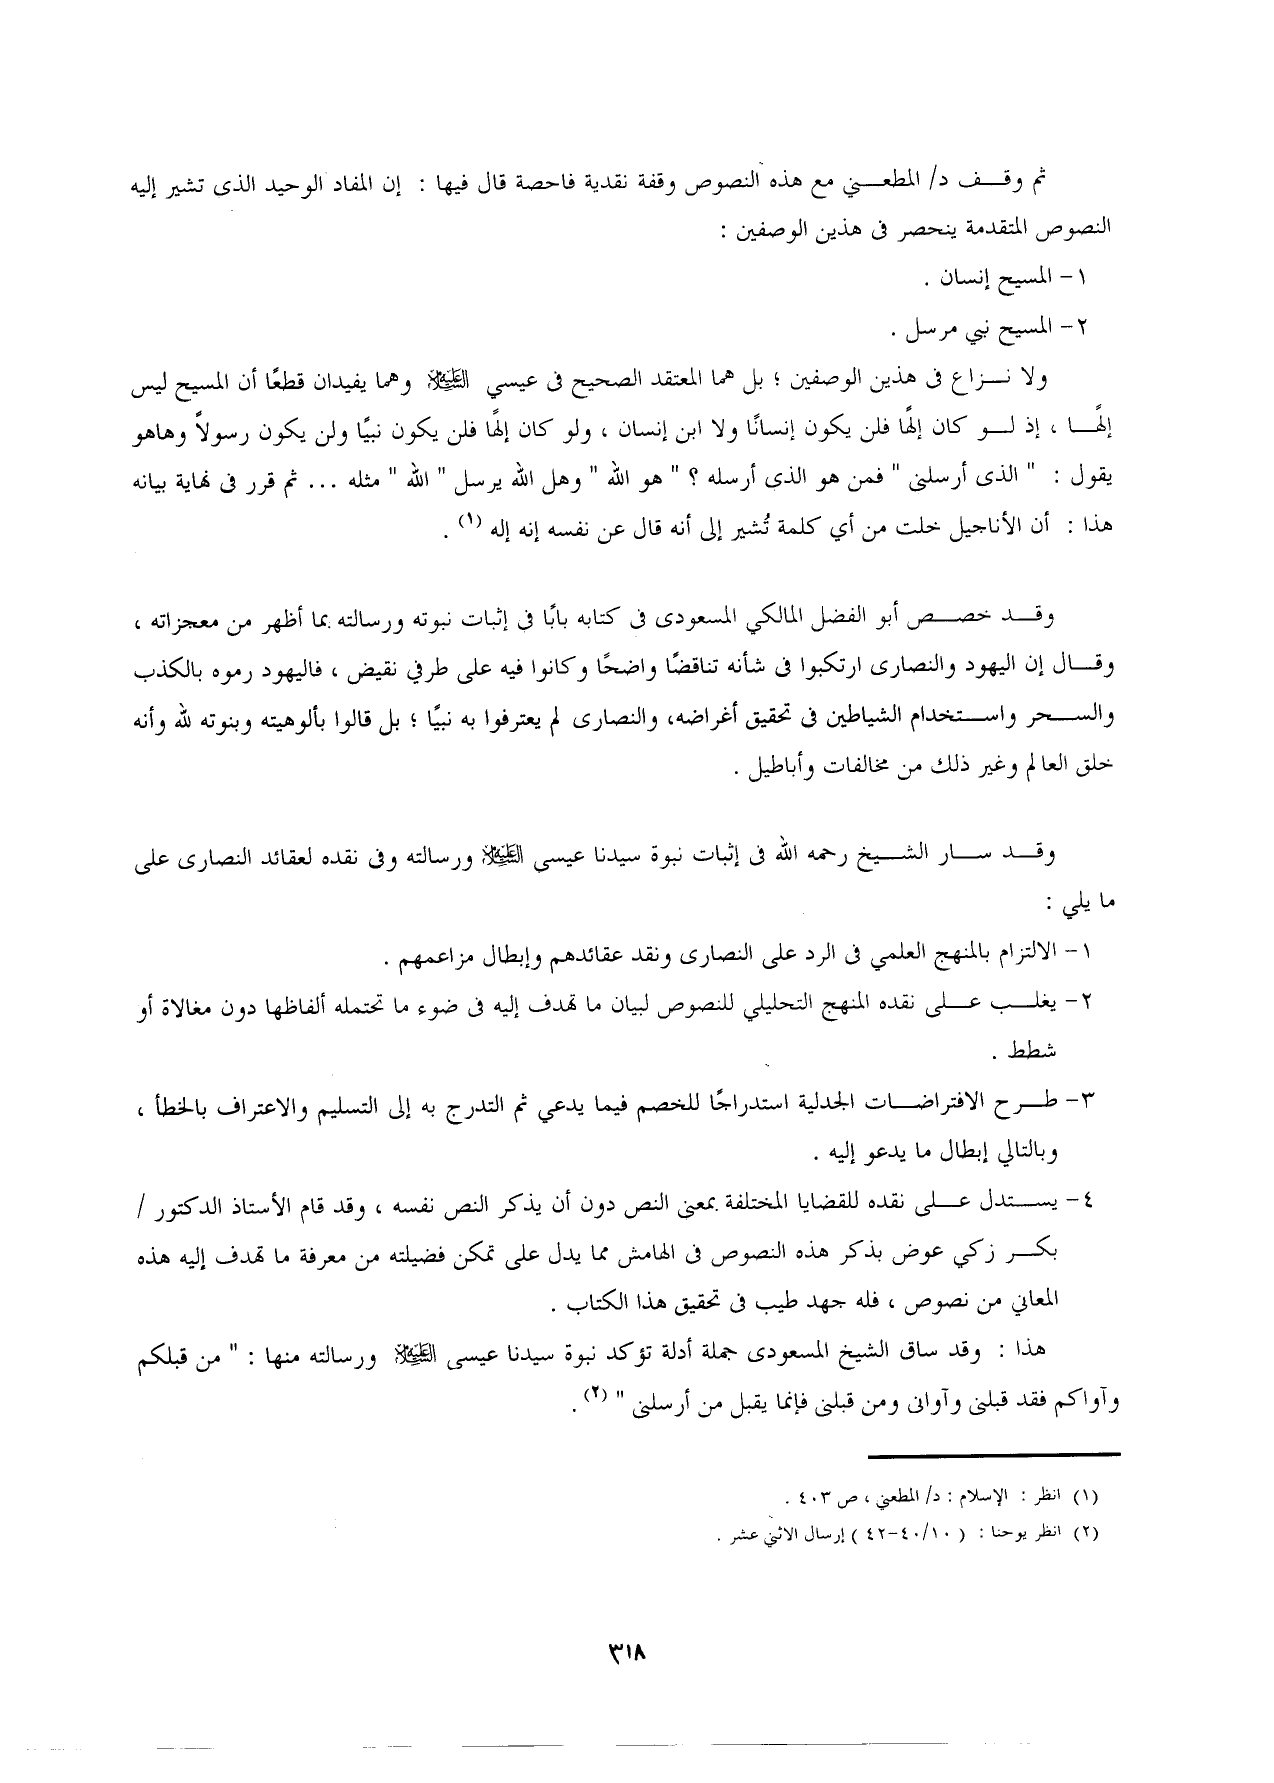 ثم وقف د/ المطعني مع هذه النصوص وقفة نقدية فاحصة قال فيها : إن المفاد الوحيد الذى تشير إليه
النصوص المتقدمة ينحصر فى هذين الوصفين :
١- المسيح إنسان .
٢- المسيح نبي مرسل .
ولا نزاع فى هذين الوصفين ؛ بل هما المعتقد الصحيح فى عيسي عليه السلام وهما يفيدان قطعًا أن المسيح ليس
إلهًا ، إذ لو كان إلهًا فلن يكون إنسانًا ولا ابن إنسان ، ولو كان إلهًا فلن يكون نبيًا ولن يكون رسولاً وهاهو
يقول : " الذى أرسلنى " فمن هو الذى أرسله ؟ " هو الله " وهل الله يرسل " الله " مثله ... ثم قرر فى نهاية بيانه
هذا : أن الأناجيل خلت من أي كلمة تُشير إلى أنه قال عن نفسه إنه إله (١) .
وقد خصص أبو الفضل المالكي المسعودى فى كتابه بابًا فى إثبات نبوته ورسالته بما أظهر من معجزاته ،
وقال إن اليهود والنصارى ارتكبوا فى شأنه تناقضًا واضحًا وكانوا فيه على طرفي نقيض ، فاليهود رموه بالكذب
والسحر واستخدام الشياطين فى تحقيق أغراضه، والنصارى لم يعترفوا به نبيًا ؛ بل قالوا بألوهيته وبنوته لله وأنه
خلق العالم وغير ذلك من مخالفات وأباطيل .
وقد سار الشيخ رحمه الله فى إثبات نبوة سيدنا عيسى عليه السلام ورسالته وفى نقده لعقائد النصارى على
ما يلي :
١- الالتزام بالمنهج العلمي فى الرد على النصارى ونقد عقائدهم وإبطال مزاعمهم .
٢- يغلب على نقده المنهج التحليلي للنصوص لبيان ما تهدف إليه فى ضوء ما تحتمله ألفاظها دون مغالاة أو
شطط .
٣- طرح الافتراضات الجدلية استدراجًا للخصم فيما يدعي ثم التدرج به إلى التسليم والاعتراف بالخطأ ،
وبالتالي إبطال ما يدعو إليه .
٤- يستدل على نقده للقضايا المختلفة بمعنى النص دون أن يذكر النص نفسه ، وقد قام الأستاذ الدكتور /
بكر زكي عوض بذكر هذه النصوص فى الهامش مما يدل على تمكن فضيلته من معرفة ما تهدف إليه هذه
المعاني من نصوص ، فله جهد طيب فى تحقيق هذا الكتاب .
هذا : وقد ساق الشيخ المسعودى جملة أدلة تؤكد نبوة سيدنا عيسى عليه السلام ورسالته منها : " من قبلكم
وآواكم فقد قبلنى وآوانى ومن قبلنى فإنما يقبل من أرسلنى " (٢) .
(١) انظر : الإسلام : د/ المطعني ، ص ٤٠٣ .
(٢) انظر يوحنا : ( ٤٠/١٠-٤٢ ) إرسال الاثني عشر .
٣١٨